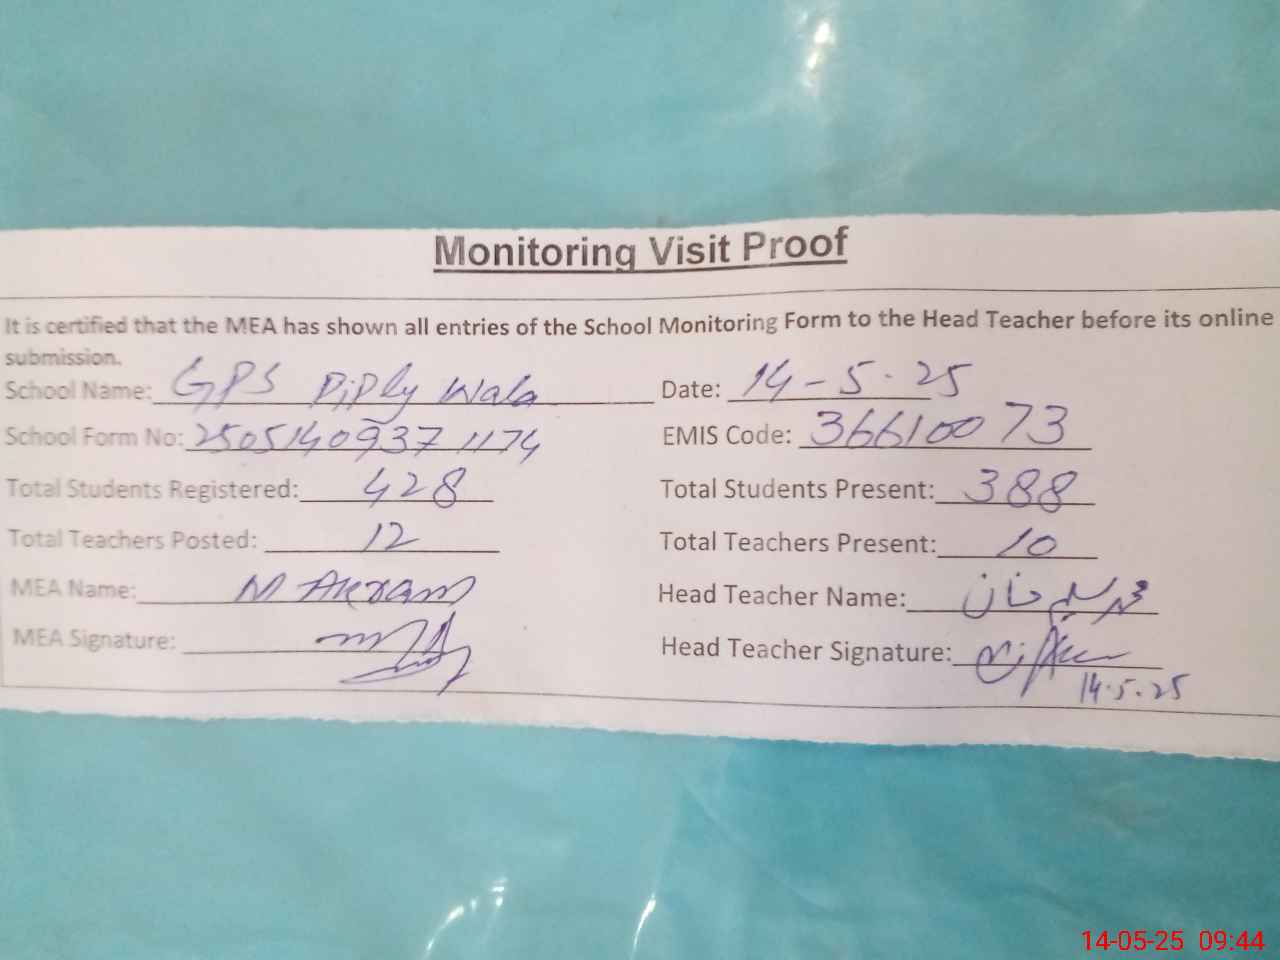 Monitoring Visit Proof
It is certified that the MEA has shown all entries of the School Monitoring Form to the Head Teacher before its online
submission.
School Name: GPS Piply Wala Date: 14-5-25
School Form No: 25051409371174 EMIS Code: 36610073
Total Students Registered: 428 Total Students Present: 388
Total Teachers Posted: 12 Total Teachers Present: 10
MEA Name: M Akram Head Teacher Name: خان
MEA Signature: Head Teacher Signature:
14.5.25
14-05-25 09:44